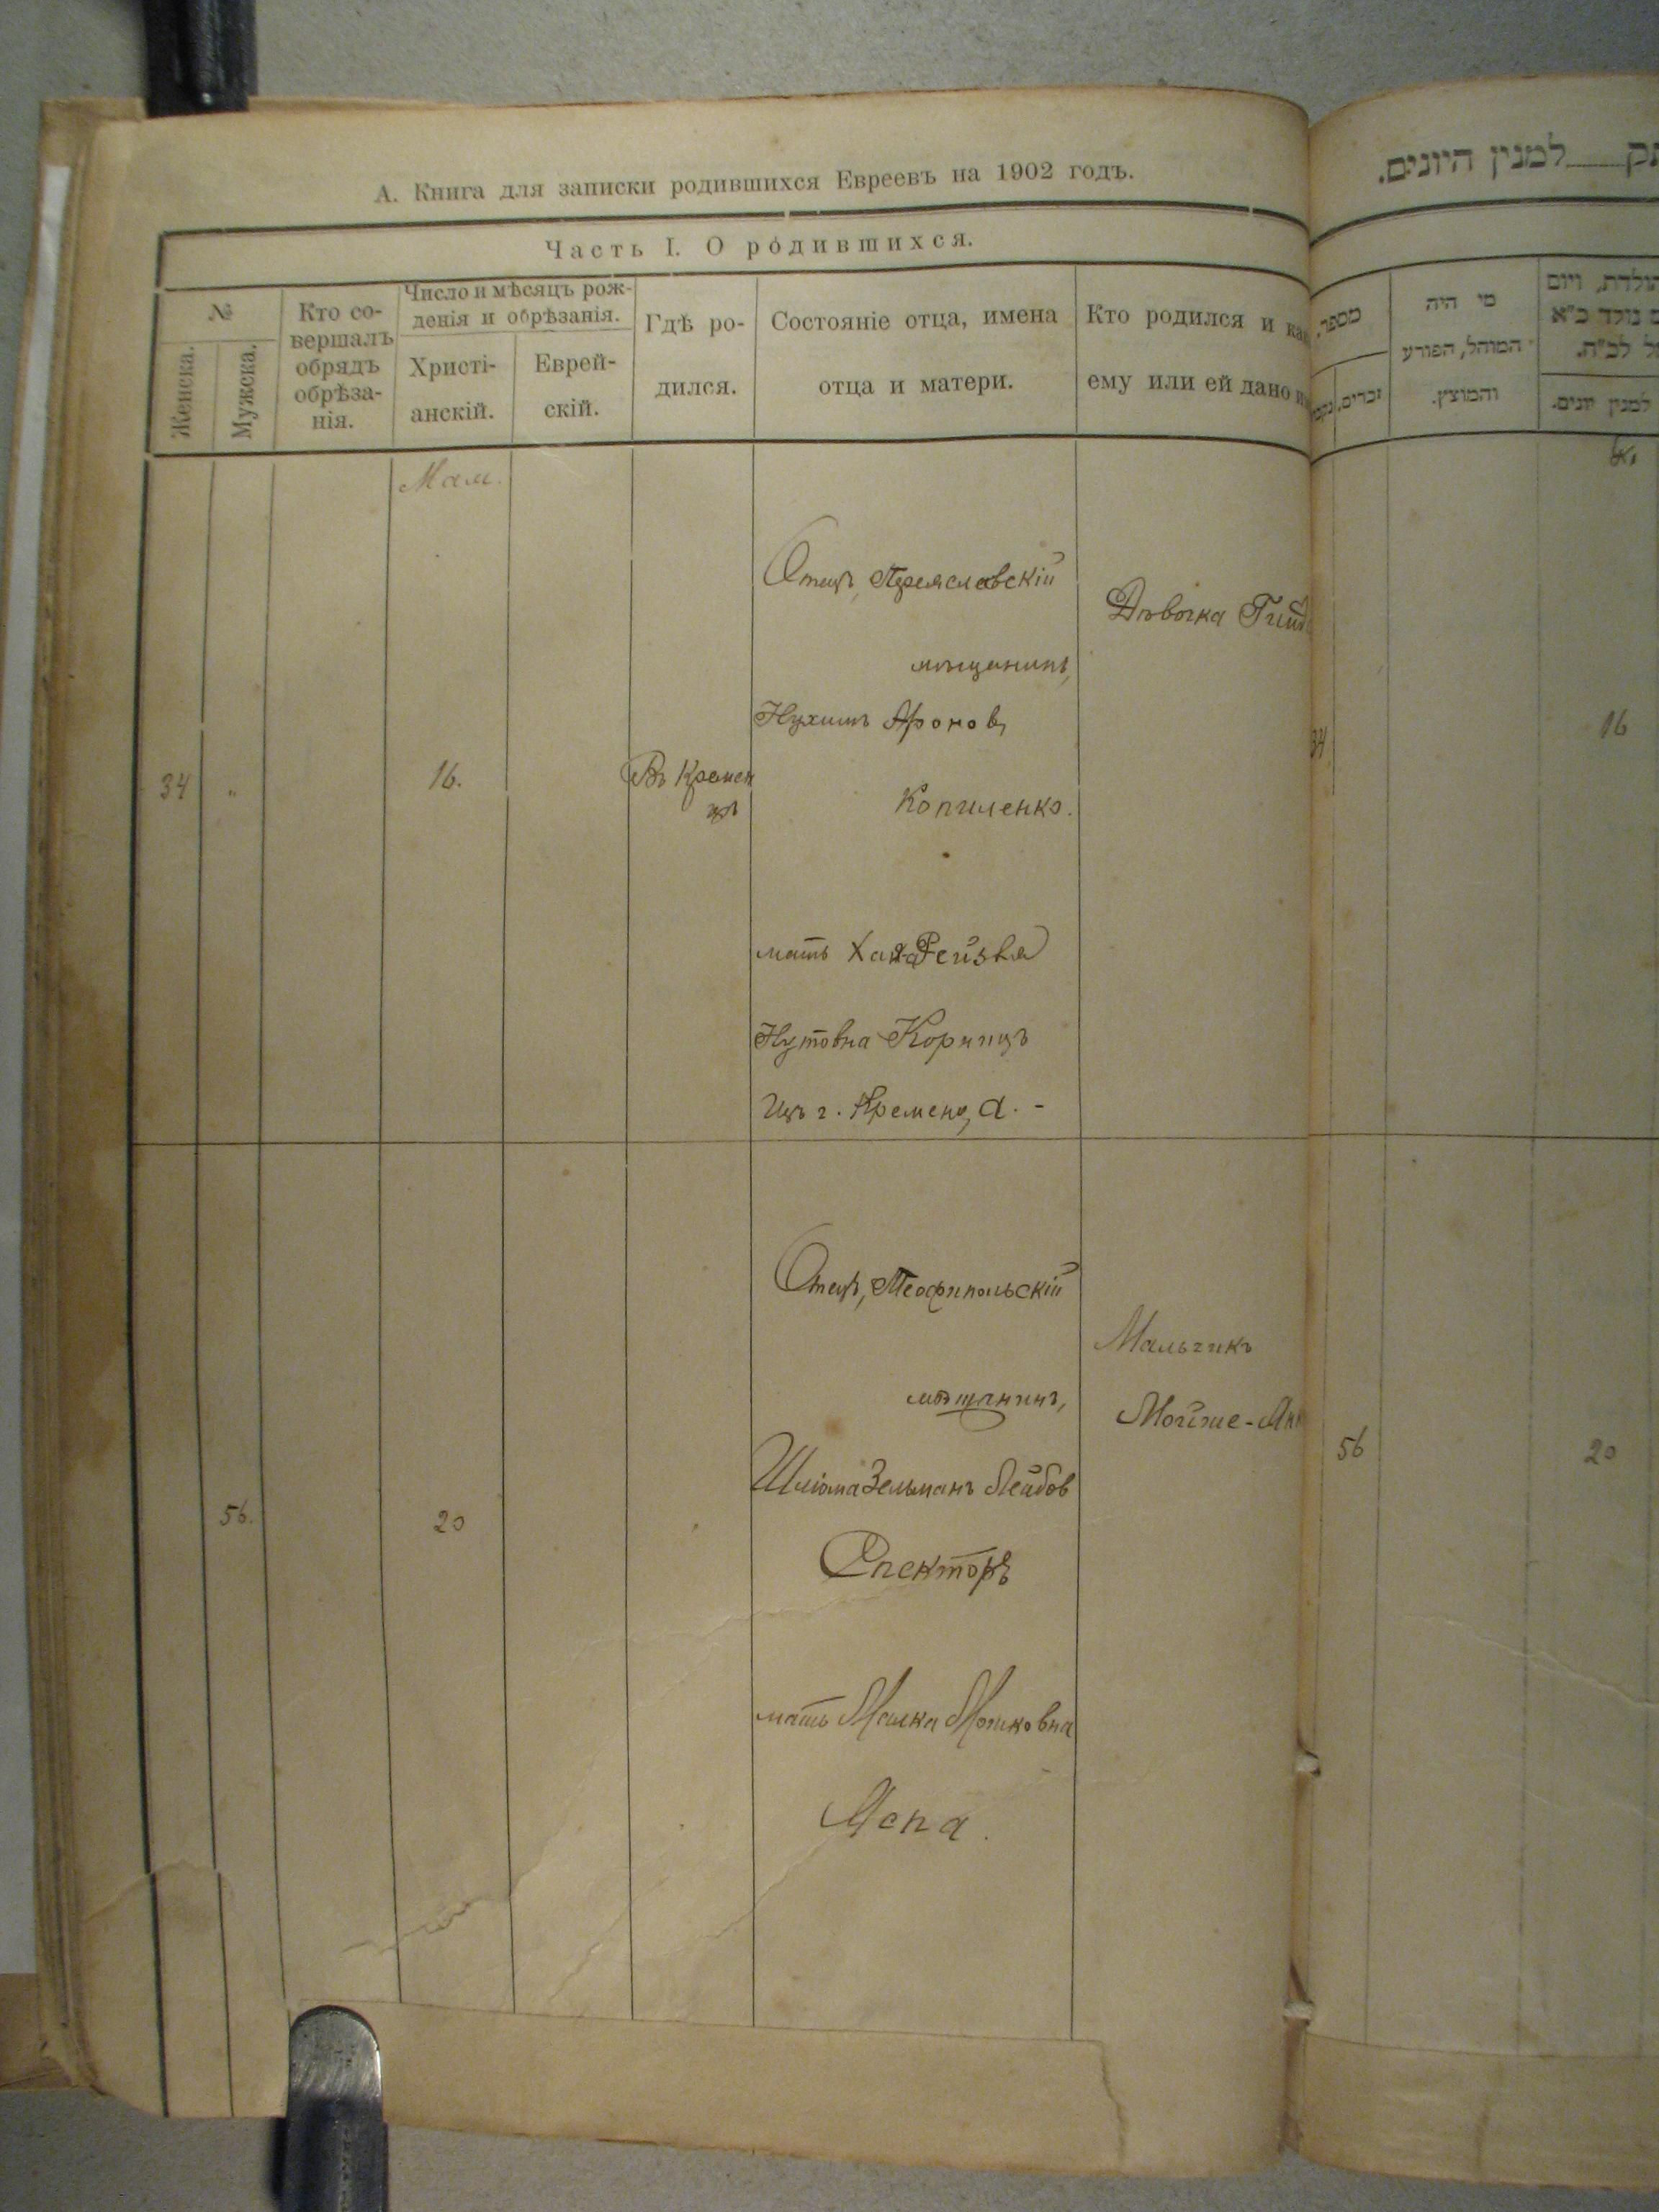 А. Книга для записки родившихся Евреевъ на 1902 годъ.
Часть I. О родившихся.
№
Женска.
Мужска.
Кто со-
вершалъ
обрядъ
обрѣза-
нія.
Число и мѣсяцъ рож-
денія и обрѣзанія.
Христі-
анскій.
Еврей-
скій.
Гдѣ ро-
дился.
Состояніе отца, имена
отца и матери.
Кто родился и как
ему или ей дано и
Маи.
34
"
16.
Въ Кремен
цѣ
Отецъ, Переяславскій
мѣщанинъ,
Нухимъ Аронов,
Копиленко.
мать Хая-Рейзя
Нутовна Корницъ
Изъ г. Кременца. -
Дѣвочка
56.
20
Отецъ, Теофипольскій
мѣщанинъ,
Шлiома Зельманъ Лейбов
Спекторъ
мать Малка Мошковна
Мальчикъ
Мойше-
למנין היונים.
מספר.
זכרים.
מי היה
המוהל, הפורע
והמוצץ.
למנין יונים.
34
16
56
20